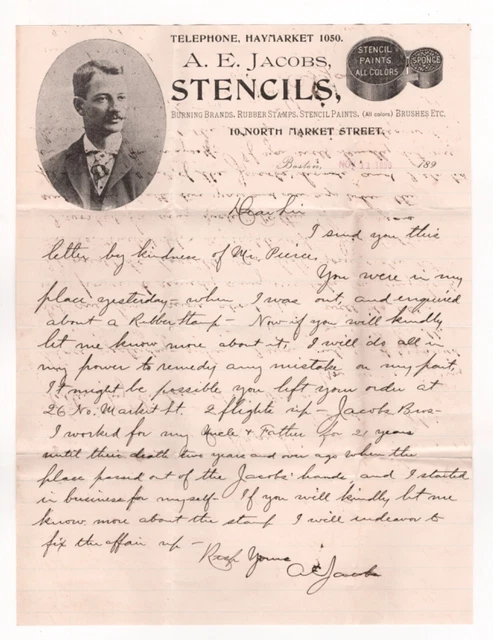 TELEPHONE, HAYMARKET 1050.
A. E. JACOBS,
STENCILS,
BURNING BRANDS, RUBBER STAMPS, STENCIL PAINTS, (All colors) BRUSHES ETC.
10 NORTH MARKET STREET,
STENCIL
PAINTS
ALL COLORS
SPONGE
Boston, 189
Dear Sir
I send you this
letter by kindness of Mr. Pierce.
You were in my
place yesterday - when I was out, and enquired
about a Rubber Stamp - Now if you will kindly
let me know more about it, I will do all in
my power to remedy any mistake on my part,
It might be possible you left your order at
26 No. Market St. 2 flights up - Jacobs Bros -
I worked for my Uncle & Father for 21 years
until their death two years and over ago when the
place passed out of the Jacobs' hands, and I started
in business for myself - If you will kindly let me
know more about the stamp I will endeavor to
fix the affair up -
Resp Yours
A E Jacobs